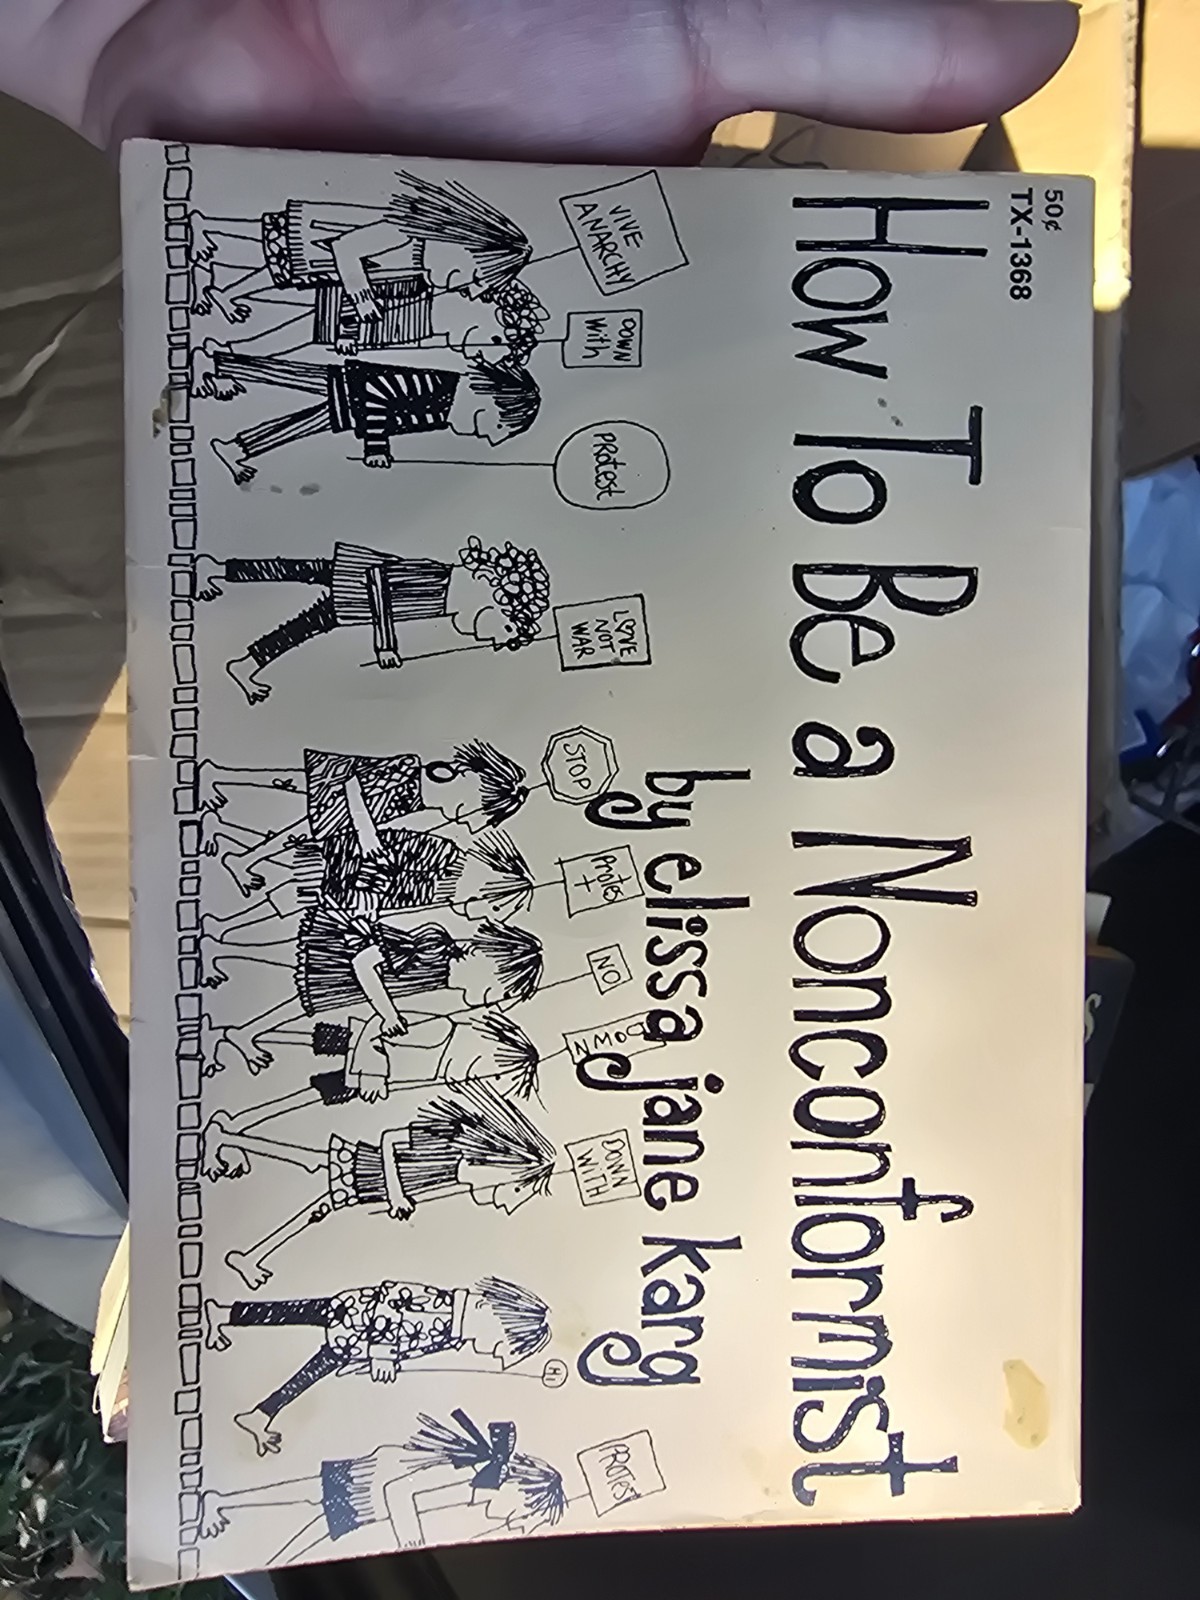 50¢
TX-1368
How To Be a Nonconformist
by elissa jane karg
VIVE
ANARCHY
DOWN
With
PROtest
LOVE
NOT
WAR
STOP
Protes
t
NO
DOWN
DOWN
WITH
HI
PROTEST
S